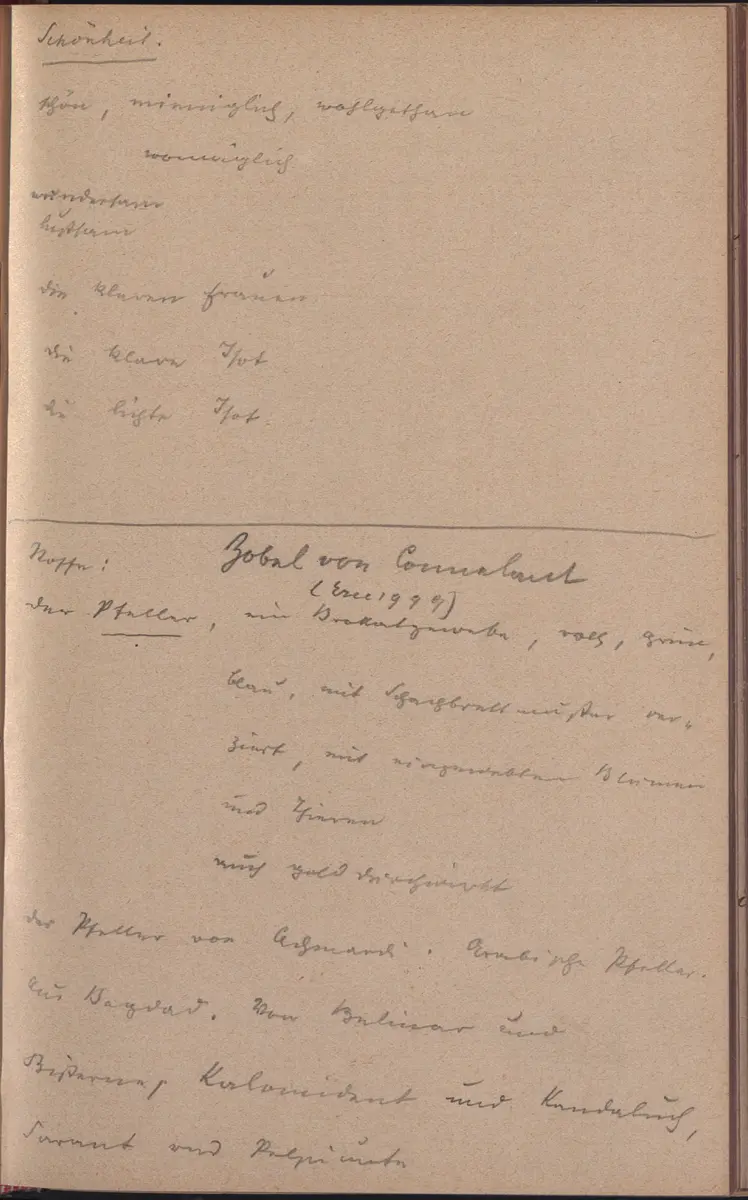 Schönheit.
schön, minniglich, wohlgethan
wonniglich
wundersam
lustsam
die klaren Frauen
die klare Isot
die lichte Isot.
Stoffe: Zobel von Connelant
(Erec 1999)
der Pfeller, ein Brokatgewebe, roth, grün,
blau, mit Schachbrettmuster ver-
ziert, mit eingewebten Blumen
und Thieren
auch golddurchwirkt
der Pfeller von Achmardi. Arabische Pfeller.
aus Bagdad. Von Belinar und
Kalomident und Kandaluch,
Sarant und Pelpiunte